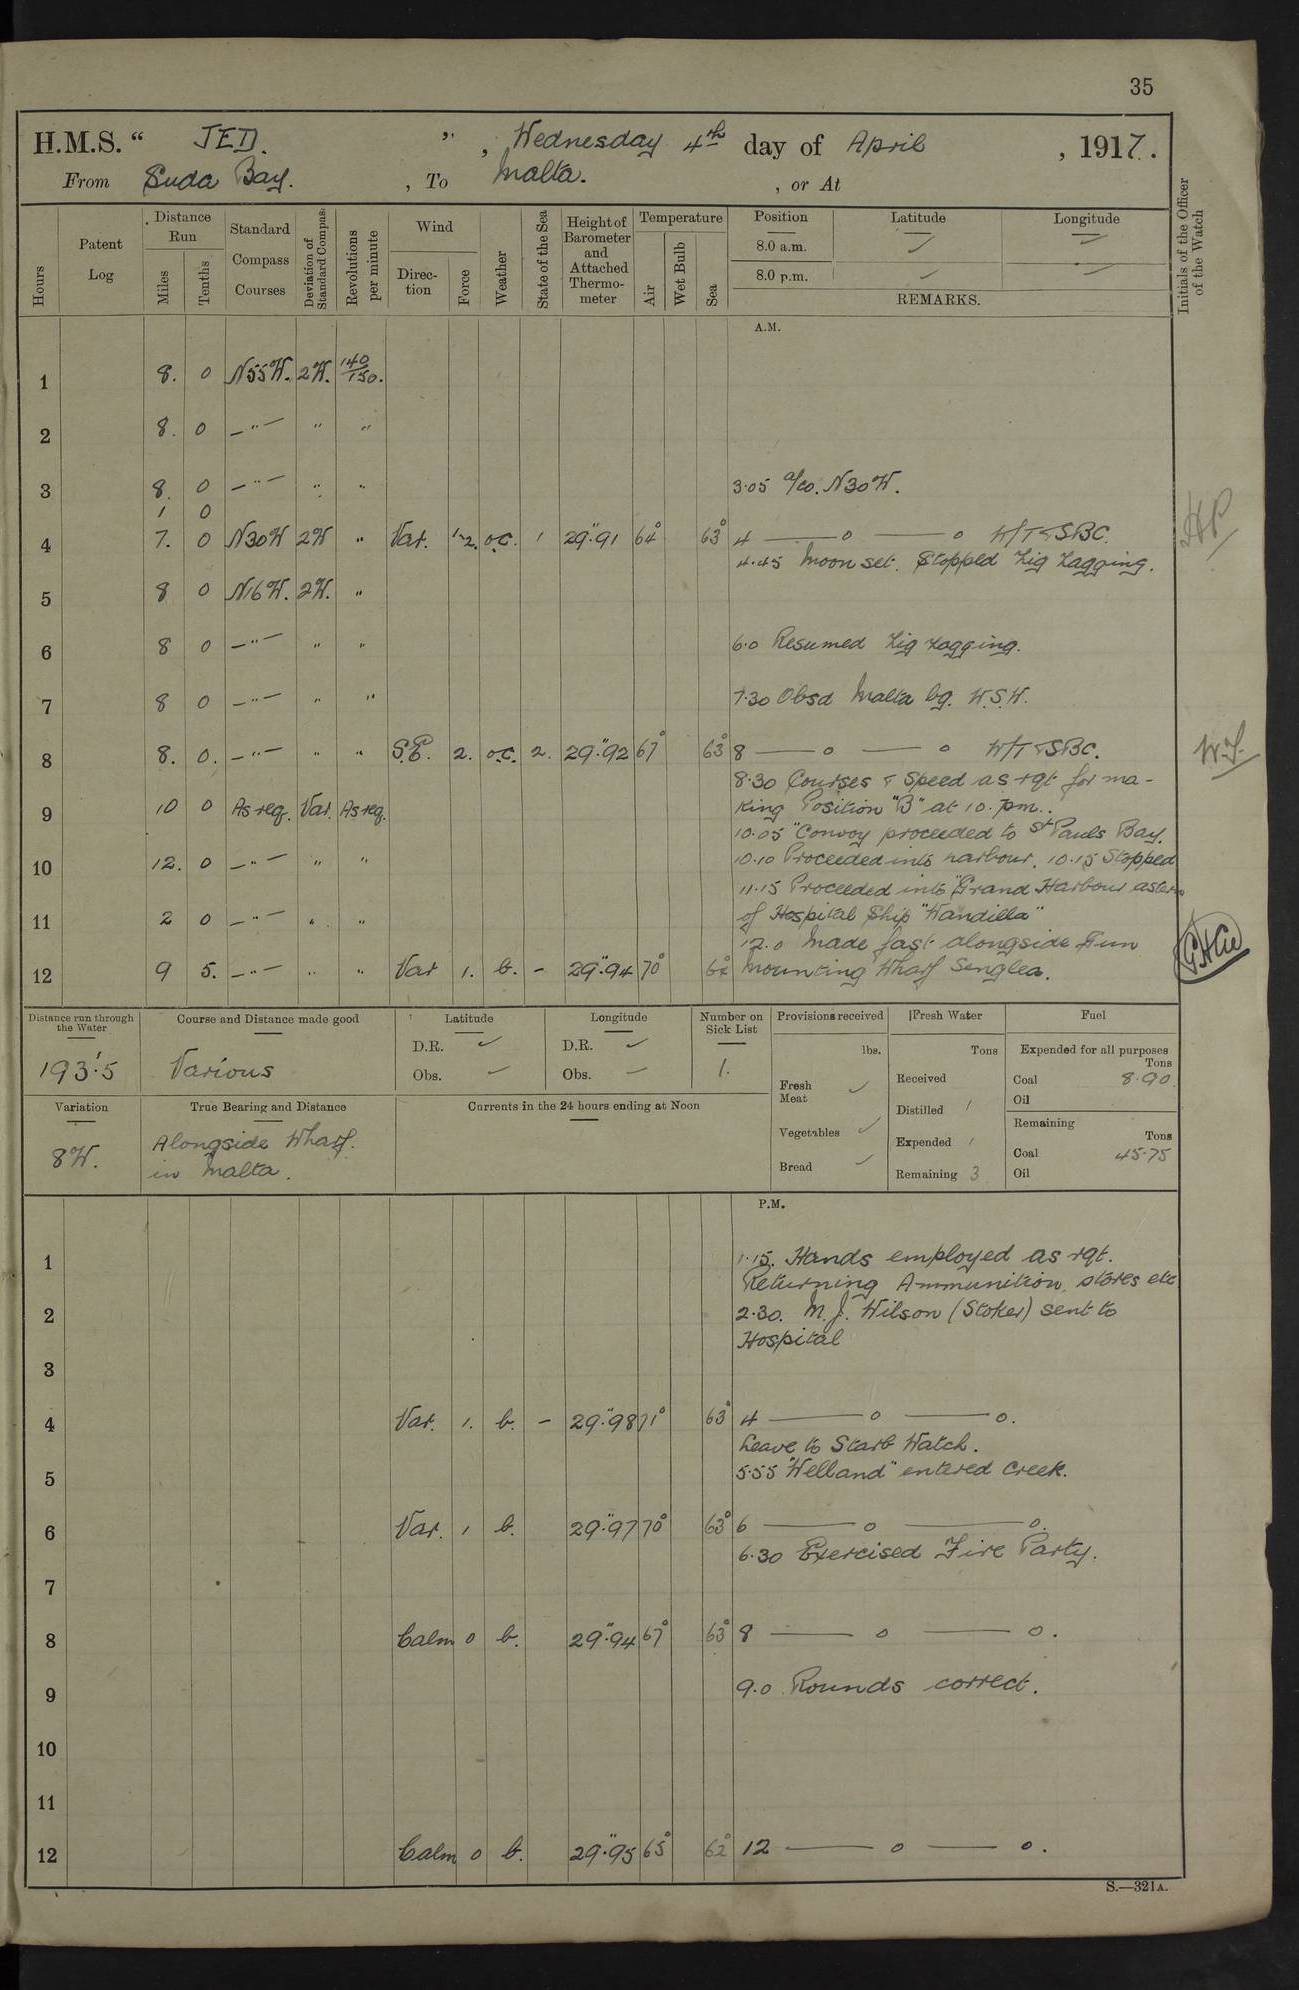 35
H.M.S. “ JED. ” , Wednesday 4th day of April , 1917.
From Suda Bay. , To Malta. , or At
Hours
Patent Log
Distance Run
Miles
Tenths
Standard Compass Courses
Deviation of Standard Compass
Revolutions per minute
Wind
Direc- tion
Force
Weather
State of the Sea
Height of Barometer and Attached Thermo- meter
Temperature
Air
Wet Bulb
Sea
Position Latitude Longitude
8.0 a.m. ✓ ✓
8.0 p.m. ✓ ✓
REMARKS.
Initials of the Officer of the Watch
A.M.
1 8. 0 N55W. 2W. 140/150.
2 8. 0 —"— " "
3 8. 0 —"— " " 3.05 a/co. N30W.
1 0
4 7. 0 N30W 2W " Var. 1-2. o.c. 1 29".91 64° 63° 4 —— o —— o W/T & SBC.
4.45 Moon set. Stopped Zig Zagging.
5 8 0 N16W. 2W. "
6 8 0 —"— " " 6.0 Resumed Zig zagging.
7 8 0 —"— " " 7.30 Obsd Malta bg. W.S.W.
8 8. 0. —"— " " S.E. 2. o.c. 2. 29".92 67° 63° 8 —— o —— o W/T & SBC.
8.30 Courses & Speed as rqt for ma-
9 10 0 As req. Var. As req. king Position "B" at 10. pm..
10.05 "Convoy proceeded to St Pauls Bay.
10 12. 0 —"— " " 10.10 Proceeded into harbour. 10.15 Stopped
11.15 Proceeded into "Grand Harbour astern
11 2 0 —"— " " of Hospital Ship "Wandilla"
12.0 Made fast alongside Gun
12 9 5. —"— " " Var 1. b. - 29".94 70° 62 Mounting Wharf Senglea.
Distance run through the Water
193'.5
Course and Distance made good
Various
Latitude
D.R. ✓
Obs. ✓
Longitude
D.R. ✓
Obs. ✓
Number on Sick List
1.
Provisions received
lbs.
Fresh Meat ✓
Vegetables ✓
Bread ✓
Fresh Water
Tons
Received
Distilled 1
Expended 1
Remaining 3
Fuel
Expended for all purposes
Tons
Coal 8.90
Oil
Remaining
Tons
Coal 45.75
Oil
Variation
8W.
True Bearing and Distance
Alongside Wharf.
in Malta.
Currents in the 24 hours ending at Noon
P.M.
1 1.15. Hands employed as rqt.
Returning Ammunition, stores etc
2 2.30. M. J. Wilson (Stoker) sent to
Hospital
3
4 Var. 1. b. - 29".98 71° 63° 4 —— o —— o.
Leave to Starb Watch.
5 5.55 "Welland" entered Creek.
6 Var. 1 b. 29".97 70° 63° 6 —— o —— o.
6.30 Exercised Fire Party.
7
8 Calm 0 b. 29".94 67° 63° 8 —— o —— o.
9 9.0 Rounds correct.
10
11
12 Calm 0 b. 29".95 65° 62° 12 —— o —— o.
S.—321A.